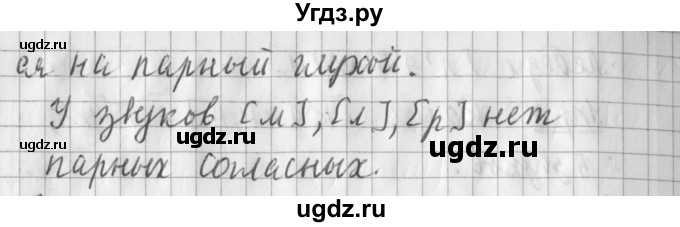 Угдз.ру
ся на парный глухой.
У звуков [м], [л], [р] нет
парных согласных.
ugdz.ru
ugdz.ru
ugdz.ru
ugdz.ru
ugdz.ru
ugdz.ru
ugdz.ru